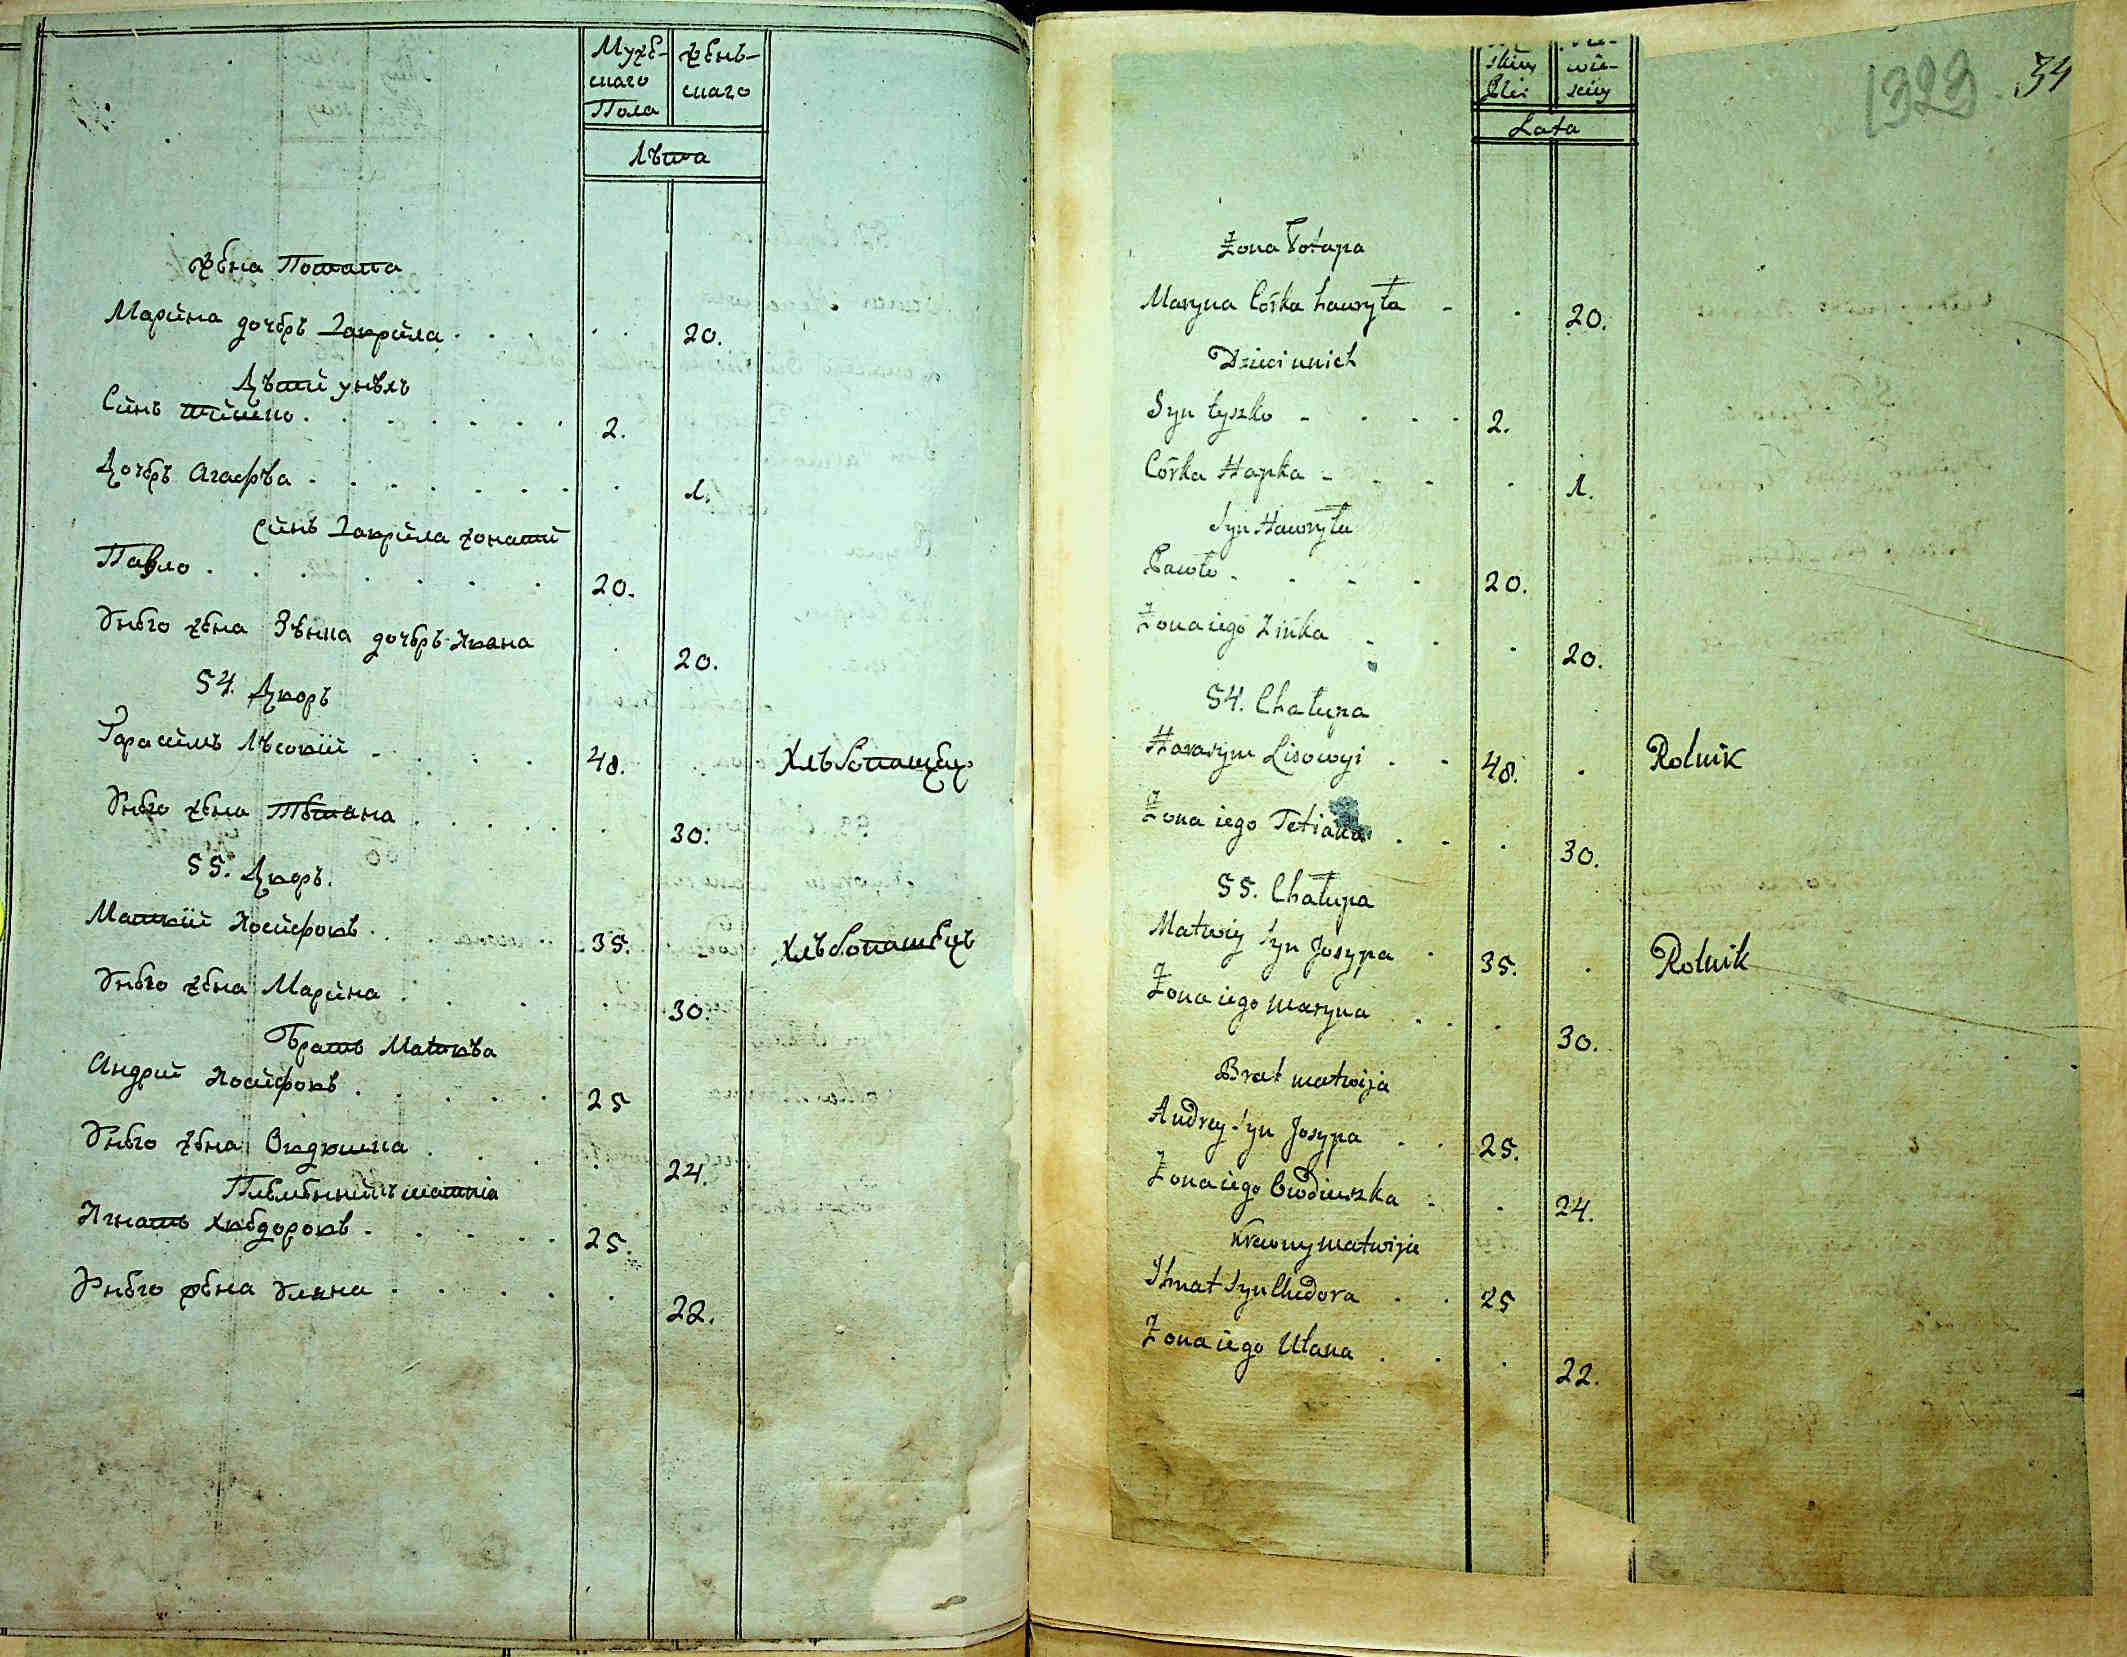 Муже-
скаго
Пола
Жень-
скаго
Лѣта
Жена Потапа
Марина дочерь Гаврила 20.
Дѣти унихъ
Синъ Тишко 2.
Дочерь Агафѣа 1.
Синъ Гаврила жонатий
Павло 20.
Унего жена Зѣнка дочерь Ивана 20.
54. Дворъ
Гарасимъ Лѣсовій 48. Хлѣбопашецъ
Унего жена Тетяна 30.
55. Дворъ.
Матвій Иосифовъ 35. Хлѣбопашецъ
Унего жена Марина 30.
Братъ Матвѣа
Андрий Иосифовъ 25
Унего жена Овдюшка 24.
Игнатъ Хведоровъ 25.
Унего жена Уляна 22.
skiey
Płci
wie-
skiey
Lata
1329
34
Żona Potapa
Maryna Córka hawryła 20.
Dzieci unich
Syn tyszko 2.
Córka Hapka 1.
Syn Hawryła
Pawło 20.
Żona iego Zińka 20.
54. Chałupa
Harasym Lisowyi 48. Rolnik
Żona iego Tetiana 30.
55. Chałupa
Matwiy Syn Josypa 35. Rolnik
Żona iego Maryna 30.
Brat matwija
Andrey Syn Josypa 25.
Żona iego Owdiuszka 24.
Krewny matwija
Ihnat Syn Chwedora 25
Żona iego Ulana 22.